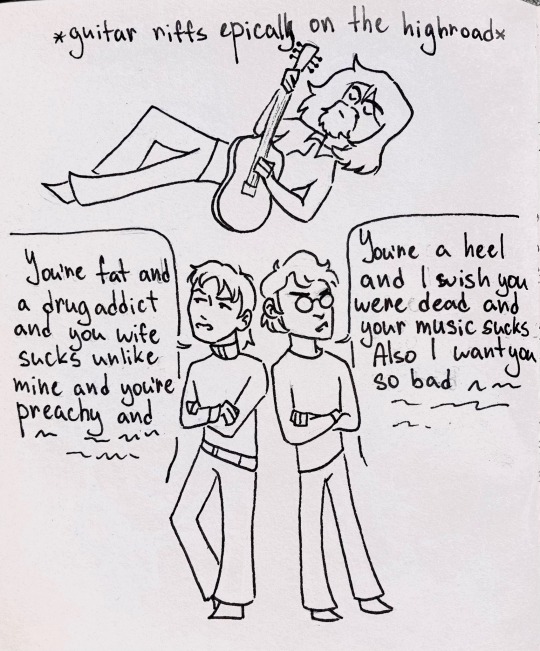 *guitar riffs epically on the highroad*
You're fat and
a drug addict
and you wife
sucks unlike
mine and you're
preachy and
You're a heel
and I wish you
were dead and
your music sucks
Also I want you
so bad